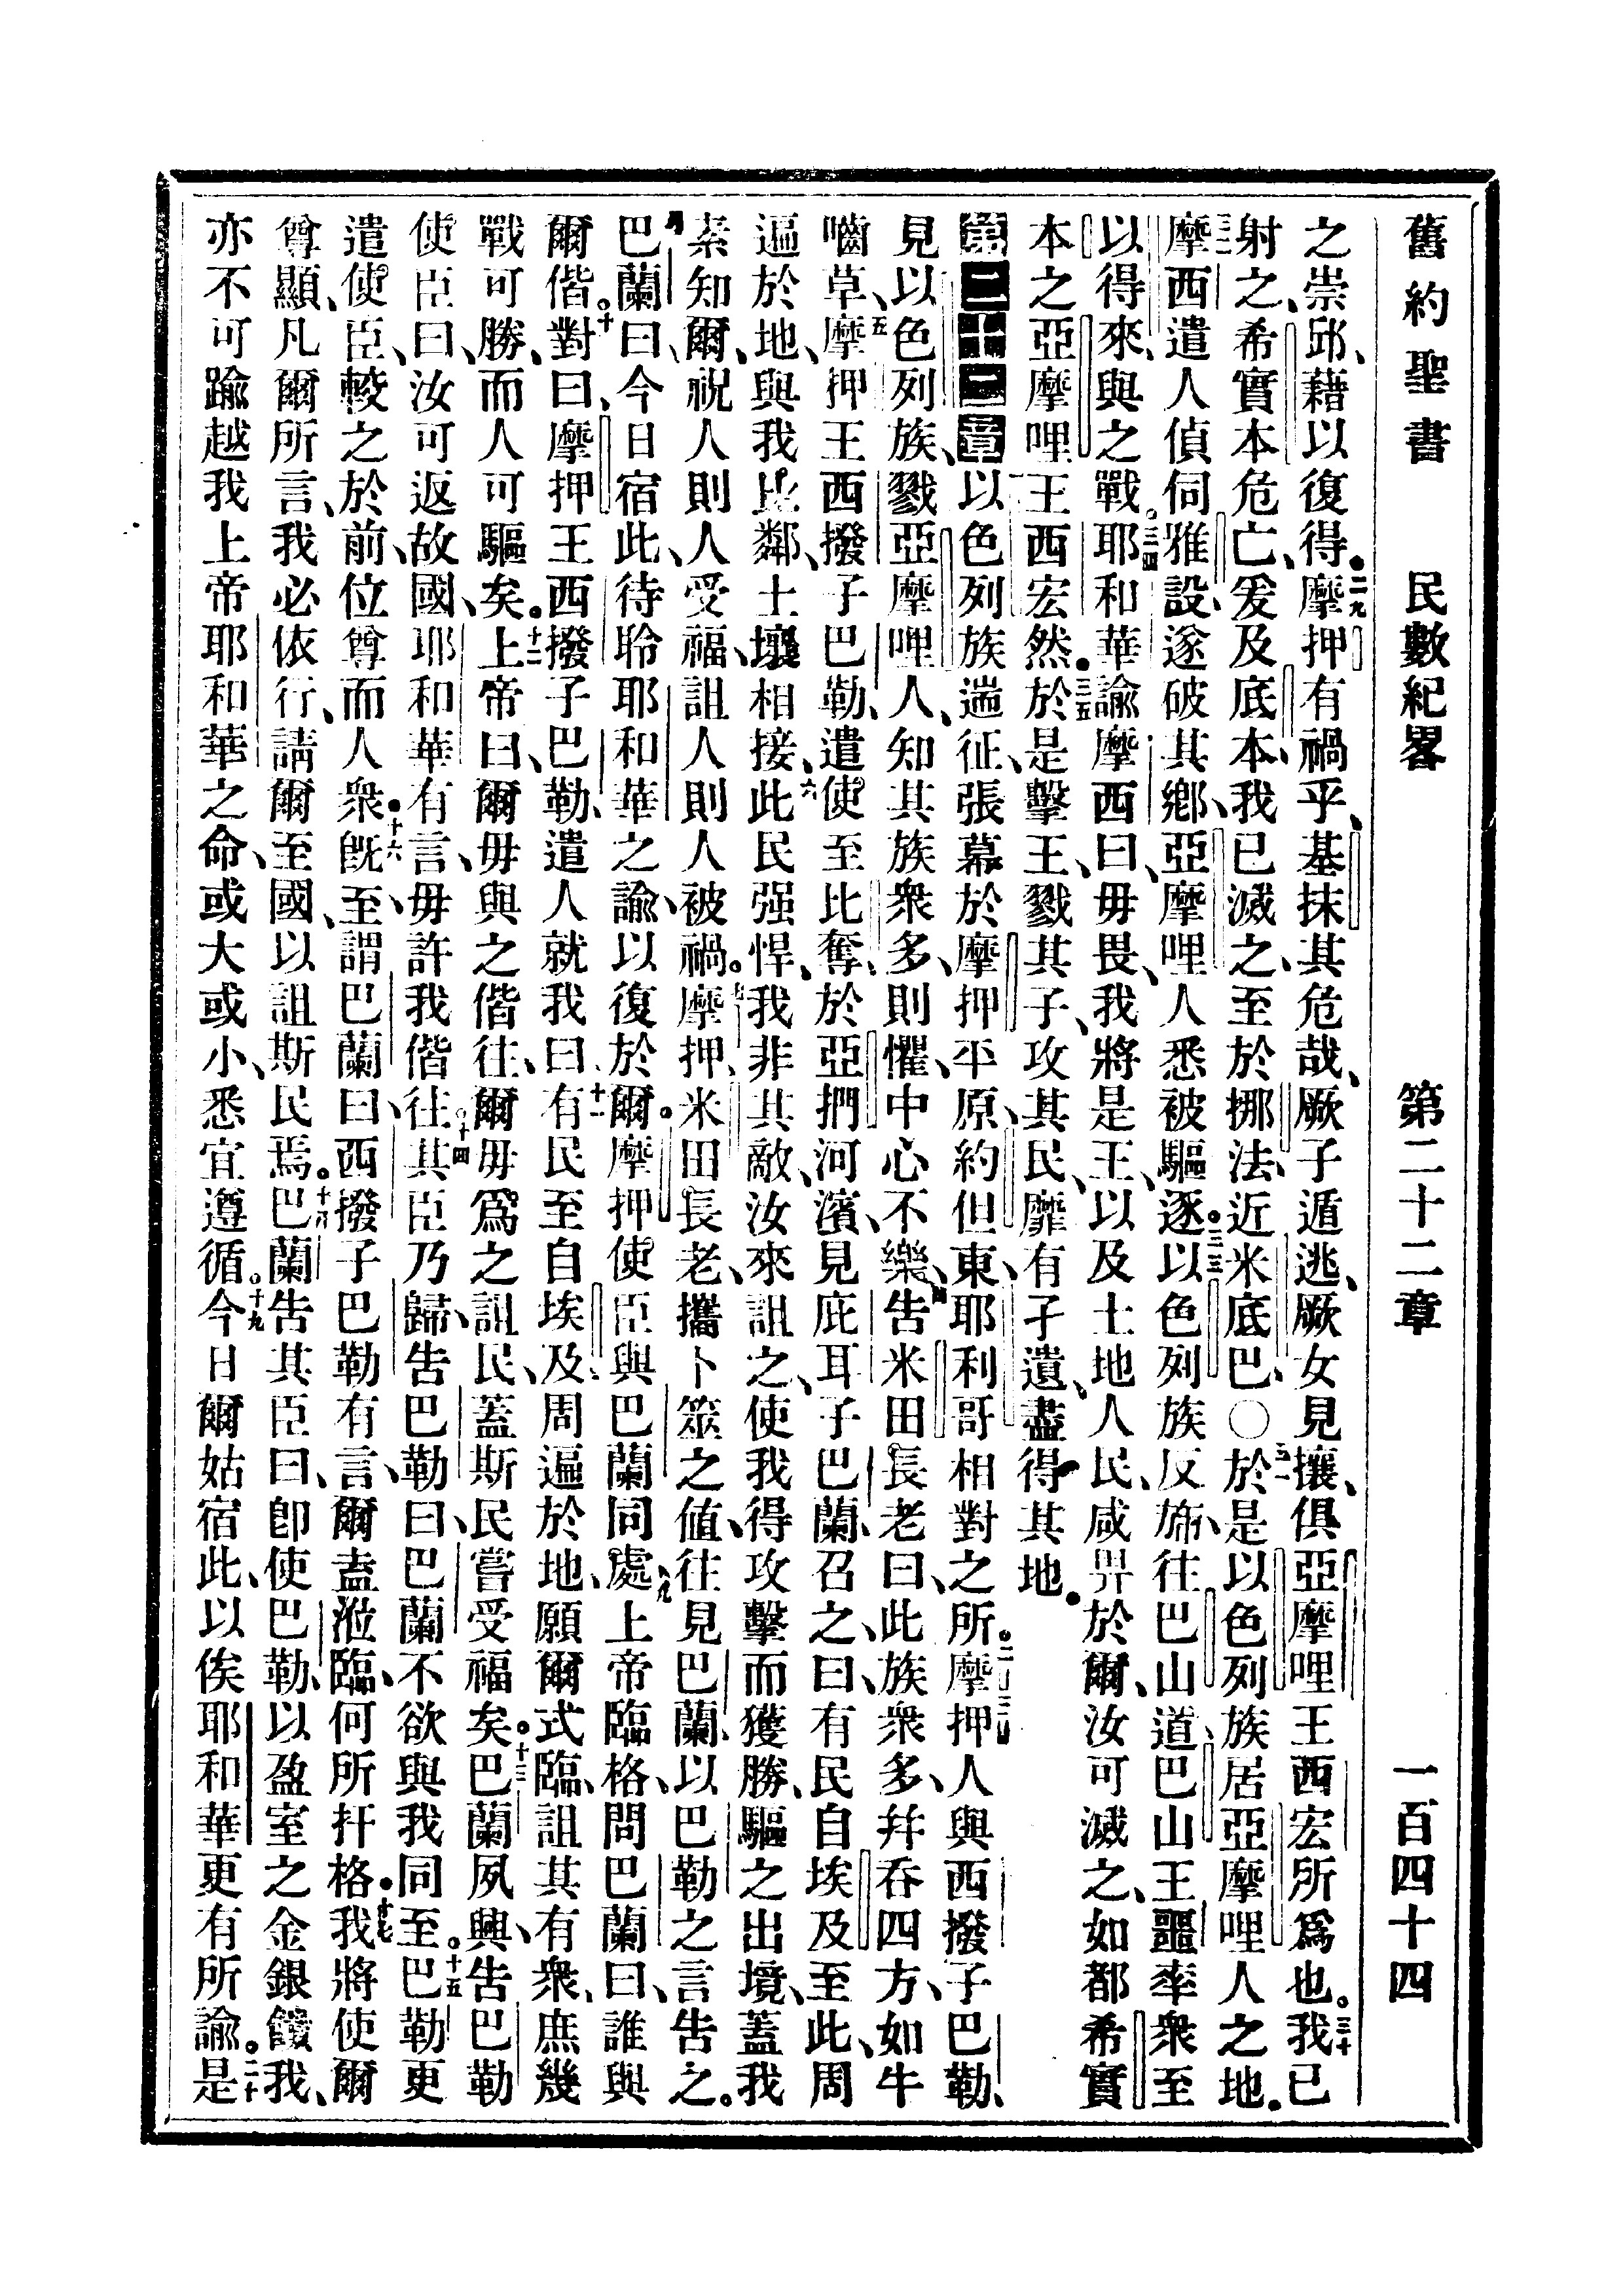 舊約聖書 民數紀畧 第二十二章 一百四十四
之崇邱、藉以復得。二九摩押有禍乎、基抹其危哉、厥子遁逃、厥女見攘、俱亞摩哩王西宏所爲也。三十我已
射之、希實本危亡、爰及底本、我已滅之、至於挪法、近米底巴〇三一於是以色列族居亞摩哩人之地。
三二摩西遣人偵伺雅設、遂破其鄉、亞摩哩人悉被驅逐。三三以色列族反旆、往巴山道、巴山王噩率衆至
以得來、與之戰。三四耶和華諭摩西曰、毋畏、我將是王、以及土地人民、咸畀於爾、汝可滅之、如都希實
本之亞摩哩王西宏然。三五於是擊王、戮其子、攻其民、靡有孑遺、盡得其地。
第二十二章 一以色列族遄征、張幕於摩押平原、約但東、耶利哥相對之所。二三摩押人與西撥子巴勒、
見以色列族、戮亞摩哩人、知其族衆多、則懼、中心不樂、四告米田長老曰、此族衆多、幷吞四方、如牛
嚙草、五摩押王西撥子巴勒、遣使至比奪、於亞捫河濱、見庇耳子巴蘭、召之曰、有民自埃及至此、周
遍於地、與我比鄰、土壤相接、六此民强悍、我非其敵、汝來詛之、使我得攻擊而獲勝、驅之出境、蓋我
素知爾、祝人則人受福、詛人則人被禍。七摩押、米田長老、攜卜筮之値、往見巴蘭、以巴勒之言告之。
八巴蘭曰、今日宿此、待聆耶和華之諭、以復於爾。摩押使臣與巴蘭同處、九上帝臨格、問巴蘭曰、誰與
爾偕。十對曰、摩押王西撥子巴勒、遣人就我曰、十一有民至自埃及、周遍於地、願爾式臨、詛其有衆、庶幾
戰可勝、而人可驅矣。十二上帝曰、爾毋與之偕往、爾毋爲之詛民、蓋斯民嘗受福矣。十三巴蘭夙興、告巴勒
使臣曰、汝可返故國、耶和華有言、毋許我偕往。十四其臣乃歸、告巴勒曰、巴蘭不欲與我同至。十五巴勒更
遣使臣、較之於前、位尊而人衆。十六旣至、謂巴蘭曰、西撥子巴勒有言、爾盍涖臨、何所扞格。十七我將使爾
尊顯、凡爾所言、我必依行、請爾至國、以詛斯民焉。十八巴蘭告其臣曰、卽使巴勒、以盈室之金銀餽我、
亦不可踰越我上帝耶和華之命、或大或小、悉宜遵循。十九今日爾姑宿此、以俟耶和華更有所諭。二十是